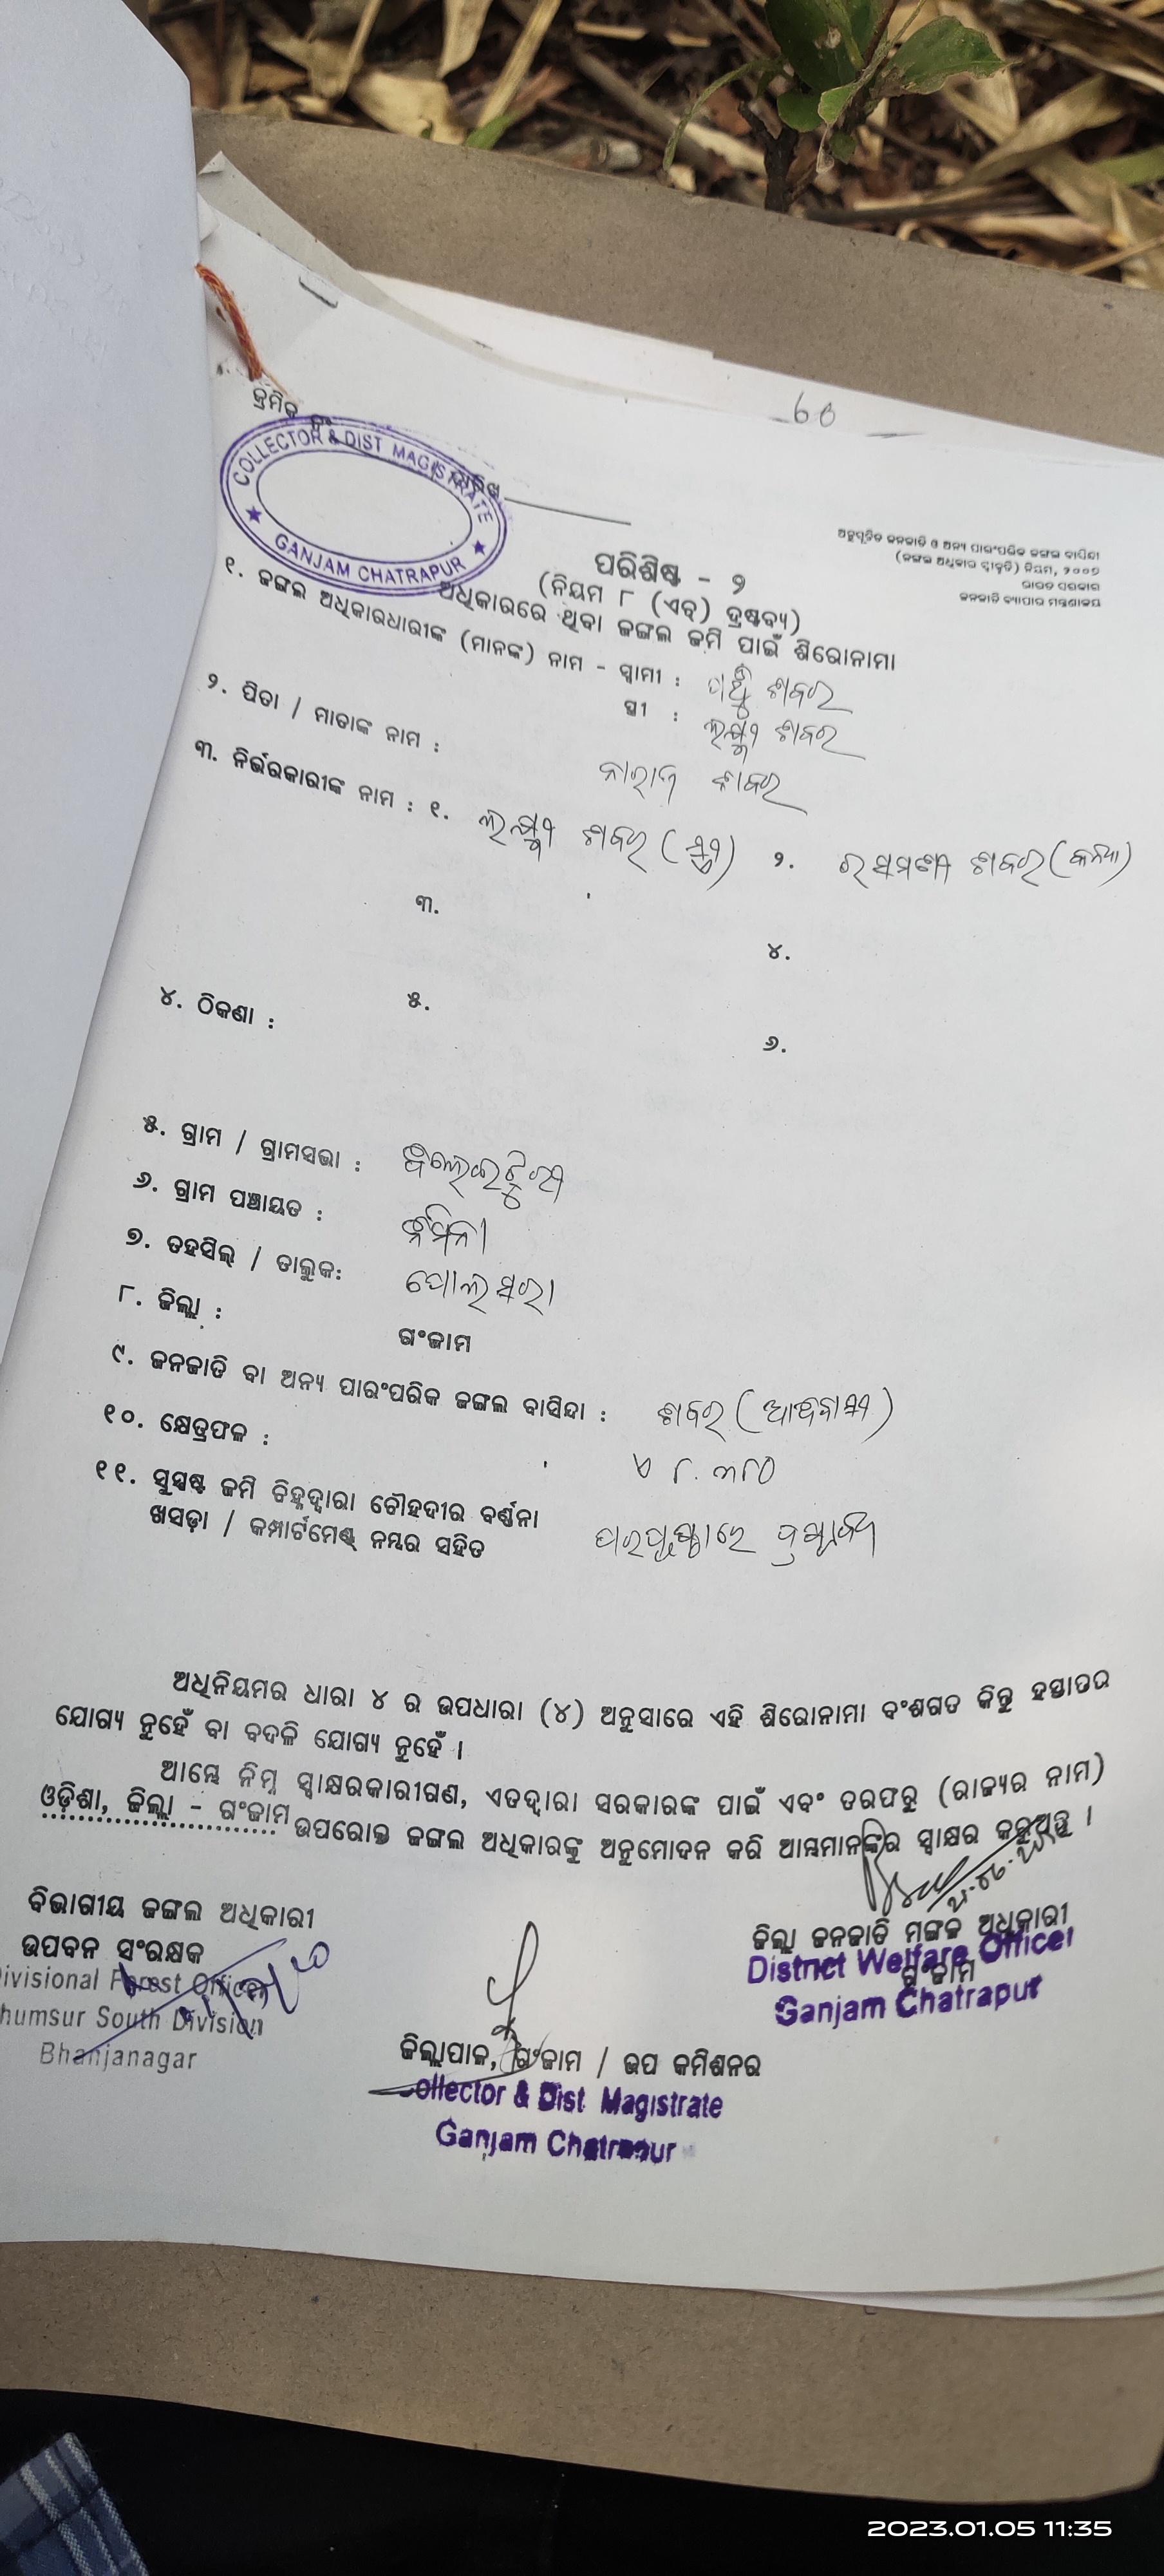 60
କ୍ରମିକ ନଂ
COLLECTOR & DIST MAGISTRATE
GANJAM CHATRAPUR
ତାରିଖ
ଅନୁସୂଚିତ ଜନଜାତି ଓ ଅନ୍ୟ ପାରଂପରିକ ଜଙ୍ଗଲ ବାସିନ୍ଦା
(ଜଙ୍ଗଲ ଅଧିକାର ସ୍ୱୀକୃତି) ନିୟମ, ୨୦୦୭
ଭାରତ ସରକାର
ଜନଜାତି ବ୍ୟାପାର ମନ୍ତ୍ରଣାଳୟ
ପରିଶିଷ୍ଟ - ୨
(ନିୟମ ୮ (ଏଚ୍) ଦ୍ରଷ୍ଟବ୍ୟ)
ଅଧିକାରରେ ଥିବା ଜଙ୍ଗଲ ଜମି ପାଇଁ ଶିରୋନାମା
୧. ଜଙ୍ଗଲ ଅଧିକାରଧାରୀଙ୍କ (ମାନଙ୍କ) ନାମ - ସ୍ୱାମୀ : ଶବର
ସ୍ତ୍ରୀ : ଲକ୍ଷ୍ମୀ ଶବର
୨. ପିତା / ମାତାଙ୍କ ନାମ : ଶବର
୩. ନିର୍ଭରକାରୀଙ୍କ ନାମ : ୧. ଲକ୍ଷ୍ମୀ ଶବର (ସ୍ତ୍ରୀ) ୨. ଶବର (କନ୍ୟା)
୩.
୪.
୪. ଠିକଣା : ୫.
୬.
୫. ଗ୍ରାମ / ଗ୍ରାମସଭା :
୬. ଗ୍ରାମ ପଞ୍ଚାୟତ :
୭. ତହସିଲ୍ / ତାଲୁକ: ପୋଲସରା
୮. ଜିଲ୍ଲା : ଗଂଜାମ
୯. ଜନଜାତି ବା ଅନ୍ୟ ପାରଂପରିକ ଜଙ୍ଗଲ ବାସିନ୍ଦା : ଶବର (ଆଦିବାସୀ)
୧୦. କ୍ଷେତ୍ରଫଳ : ଏ ୮.୩୮୦
୧୧. ସୁସ୍ପଷ୍ଟ ଜମି ଚିହ୍ନଦ୍ୱାରା ଚୌହଦୀର ବର୍ଣ୍ଣନା
ଖସଡ଼ା / କମ୍ପାର୍ଟମେଣ୍ଟ ନମ୍ୱର ସହିତ
ଅଧିନିୟମର ଧାରା ୪ ର ଉପଧାରା (୪) ଅନୁସାରେ ଏହି ଶିରୋନାମା ବଂଶଗତ କିନ୍ତୁ ହସ୍ତାନ୍ତର
ଯୋଗ୍ୟ ନୁହେଁ ବା ବଦଳି ଯୋଗ୍ୟ ନୁହେଁ ।
ଆମ୍ଭେ ନିମ୍ନ ସ୍ୱାକ୍ଷରକାରୀଗଣ, ଏତଦ୍ୱାରା ସରକାରଙ୍କ ପାଇଁ ଏବଂ ତରଫରୁ (ରାଜ୍ୟର ନାମ)
ଓଡ଼ିଶା, ଜିଲ୍ଲା - ଗଂଜାମ ଉପରୋକ୍ତ ଜଙ୍ଗଲ ଅଧିକାରଙ୍କୁ ଅନୁମୋଦନ କରି ଆମ୍ଭମାନଙ୍କର ସ୍ୱାକ୍ଷର କରୁଅଛୁ ।
ବିଭାଗୀୟ ଜଙ୍ଗଲ ଅଧିକାରୀ
ଉପବନ ସଂରକ୍ଷକ
Divisional Forest Officer
humsur South Division
Bhanjanagar
ଜିଲ୍ଲା ଜନଜାତି ମଙ୍ଗଳ ଅଧିକାରୀ
ଗଂଜାମ
District Welfare Officer
Ganjam Chatrapur
ଜିଲ୍ଲାପାଳ, ଗଂଜାମ / ଉପ କମିଶନର
Collector & Dist Magistrate
Ganjam Chatrapur
2023.01.05 11:35